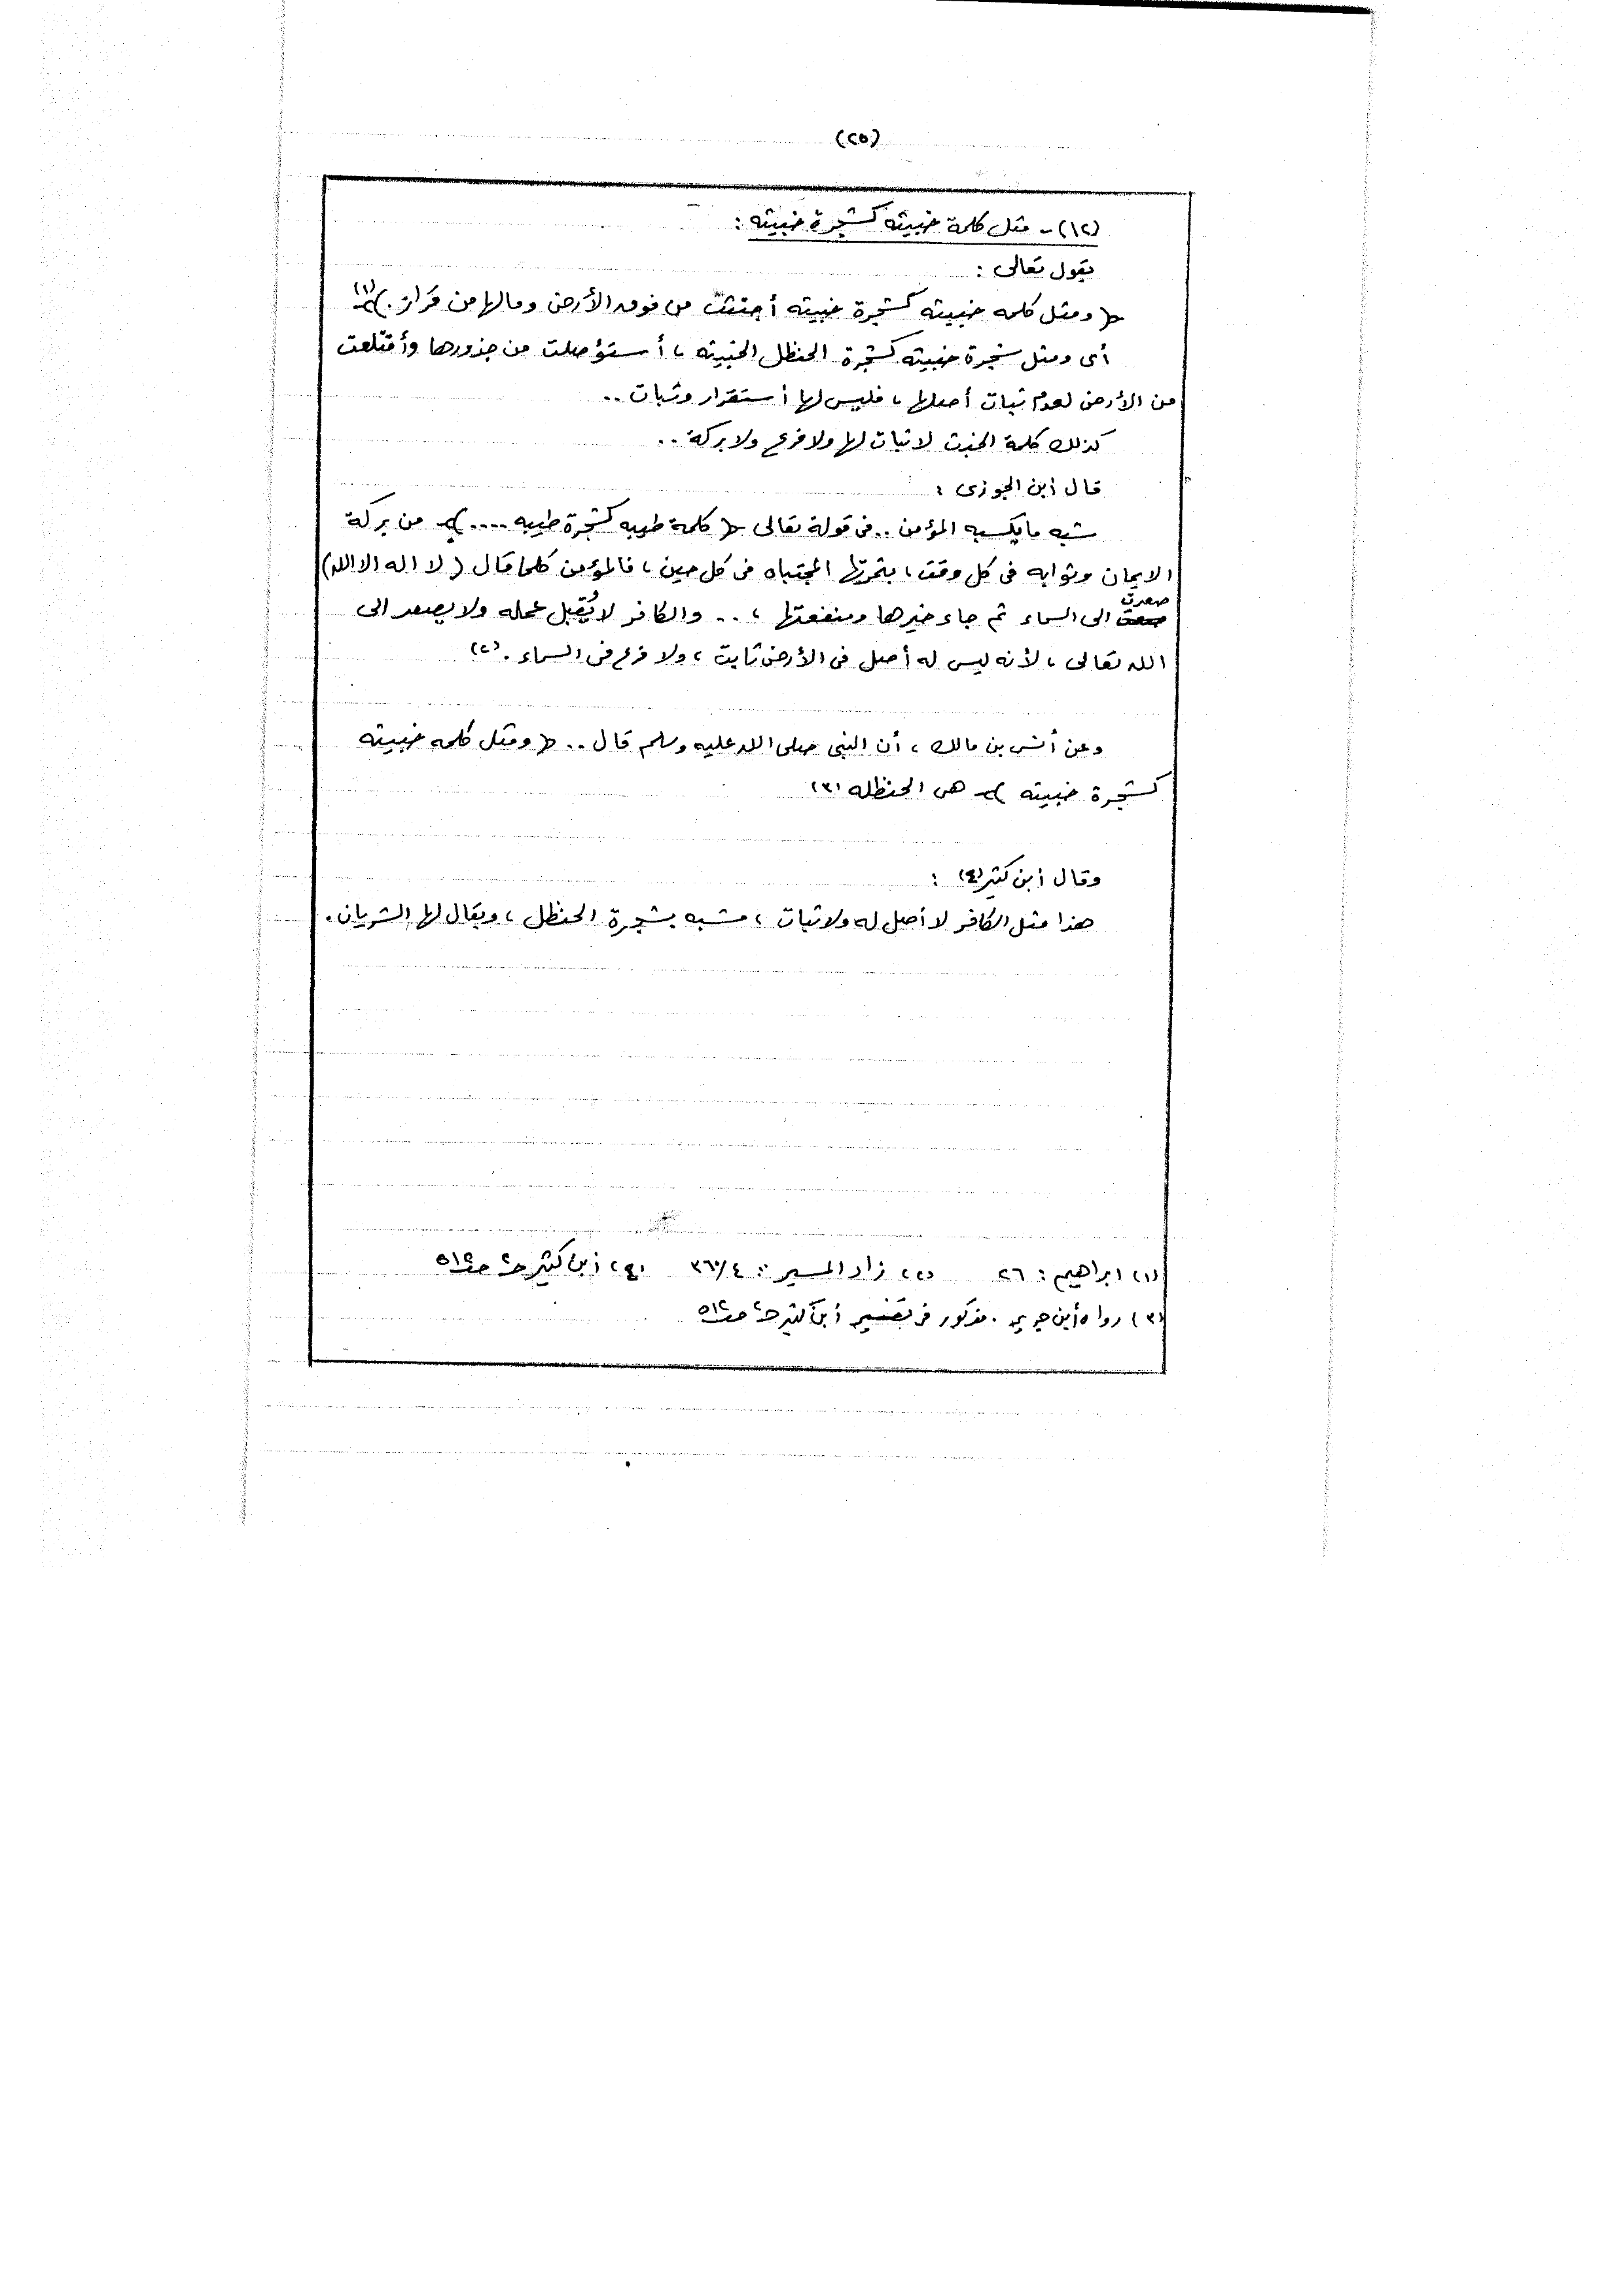 (٢٥)
(١٢) - مثل كلمة خبيثه كشجرة خبيثه :
يقول تعالى :
﴿ ومثل كلمه خبيثه كشجرة خبيثه أجتثت من فوق الأرض ومالها من قرار . ﴾(١)
أى ومثل شجرة خبيثه كشجرة الحنظل الخبيثه ، أستؤصلت من جذورها وأقتلعت
من الأرض لعدم ثبات أصلها ، فليس لها أستقرار وثبات ..
كذلك كلمة الخبث لا ثبات لها ولا فرع ولا بركة ..
قال أبن الجوزى :
شبه ما يكسبه المؤمن .. فى قولة تعالى ﴿ كلمة طيبه كشجرة طيبه .... ﴾ من بركة
الايمان وثوابه فى كل وقت ، بثمرتها المجتباه فى كل حين ، فالمؤمن كلما قال ( لا اله الا الله )
صعدت الى السماء ثم جاء خيرها ومنفعتها ، .. والكافر لا يُقبل عمله ولا يصعد الى
الله تعالى ، لأنه ليس له أصل فى الأرض ثابت ، ولا فرع فى السماء . (٢)
وعن أنس بن مالك ، أن النبى صلى الله عليه وسلم قال .. ﴿ ومثل كلمه خبيثه
كشجرة خبيثه ﴾ هى الحنظله (٣)
وقال أبن كثير (٤) :
هذا مثل الكافر لا أصل له ولا ثبات ، مشبه بشجرة الحنظل ، ويقال لها الشريان .
(١) ابراهيم : ٢٦ (٢) زاد المسير : ٣٦٠/٤ (٤) أبن كثير حـ٢ صـ٥١٢
(٣) رواه أبن جرير . مذكور فى تفسير أبن كثير حـ٢ صـ٥١٢